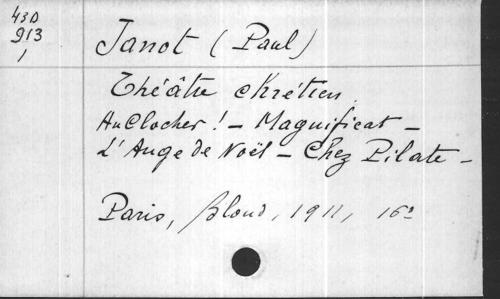 43D
913
1
Janot (Paul)
Théâtre chrétien
Au Clocher ! - Magnificat -
L'Ange de Noël - Chez Pilate -
Paris, Bloud, 1911, 16°